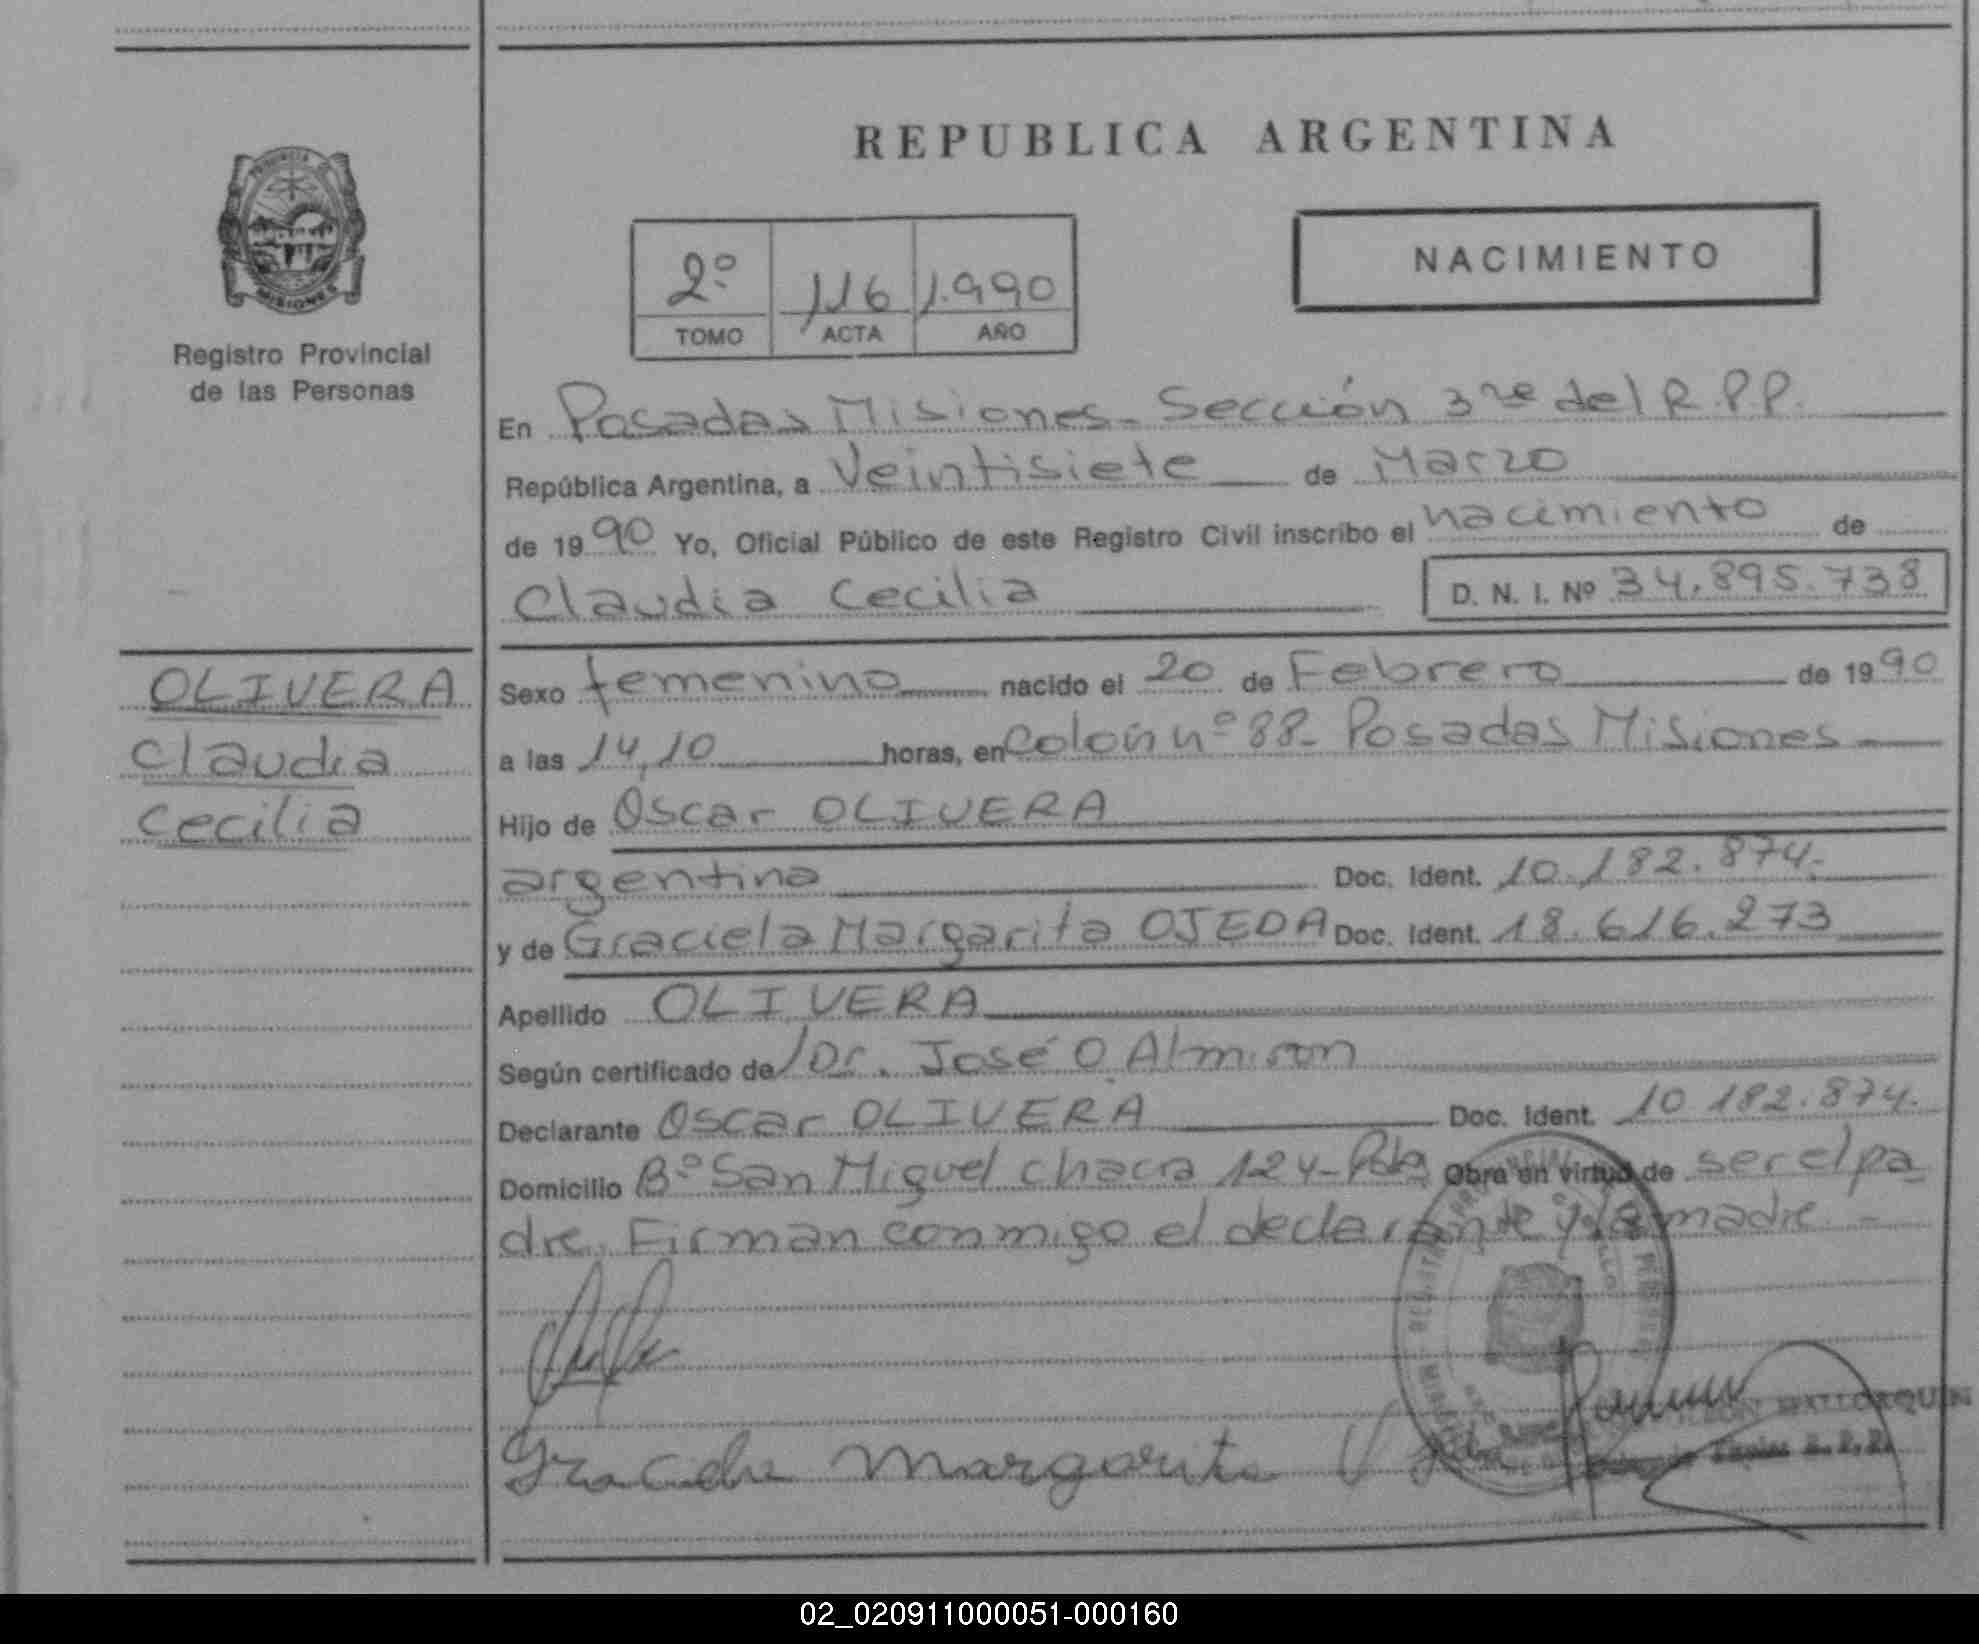 REPUBLICA ARGENTINA
PROVINCIA DE
MISIONES
Registro Provincial
de las Personas
2º 116 1.990
TOMO ACTA AÑO
NACIMIENTO
En Posadas Misiones- Sección 3ra del R.P.P.
República Argentina, a Veintisiete de Marzo
de 1990 Yo, Oficial Público de este Registro Civil inscribo el nacimiento de
Claudia Cecilia D. N. I. Nº 34.895.738
OLIVERA
Claudia
Cecilia
Sexo femenino nacido el 20 de Febrero de 1990
a las 14,10 horas, en Colón nº 88- Posadas Misiones
Hijo de Oscar OLIVERA
argentino Doc. Ident. 10.182.874.
y de Graciela Margarita OJEDA Doc. Ident. 18.616.273
Apellido OLIVERA
Según certificado de Dr. José O. Almiron
Declarante Oscar OLIVERA Doc. Ident. 10.182.874.
Domicilio Bº San Miguel chacra 124- Pdas Obra en virtud de ser el pa
dre. Firman conmigo el declarante y la madre.-
Graciela Margarita
MALLORQUIN
02_020911000051-000160